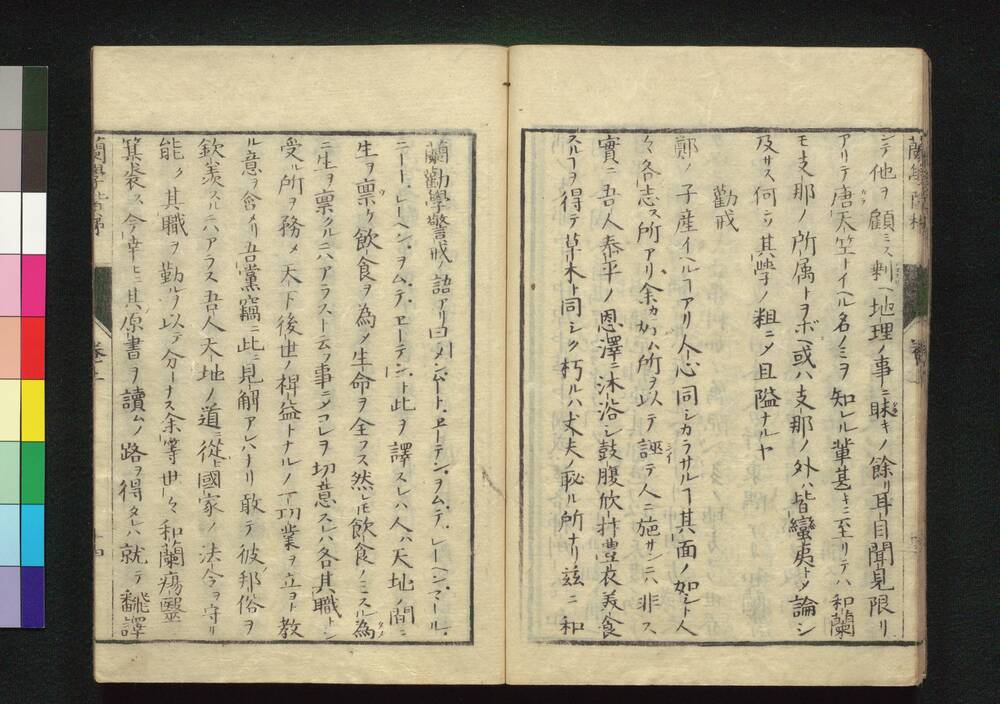 シテ他ヲ顧ミス剰ヘ地理ノ事ニ昧キノ餘リ耳目聞見限リ
アリテ唐天竺トイヘル名ノミヲ知レル輩甚キニ至リテハ和蘭
モ支那ノ所属トヲボヘ或ハ支那ノ外ハ皆蠻夷トメ論シ
及サス何ソ其学ノ粗ニメ且隘ナルヤ
勸戒
鄭ノ子産イヘルヿアリ人心同シカラサルヿ其面ノ如シト人
々各志ス所アリ余カ好ム所ヲ以テ誣テ人ニ施サンニハ非ス
實ニ吾人泰平ノ恩澤ニ沐浴シ鼓腹欣抃豊衣美食
スルヿヲ得テ草木ト同シク朽ルハ丈夫ノ恥ル所ナリ茲ニ和
蘭勸學警戒ノ語アリ曰メンムート・ヱーテン・ヲム・テ・レーヘン・マール・
ニート・レーヘン・ヲム・テ・ヱーテント此ヲ譯スレハ人ハ天地ノ間ニ
生ヲ禀ケ飲食ヲ為メ生命ヲ全フス然レ𪜈飲食ノミスル為
ニ生ヲ禀クルニハアラスト云フ事ニメコレヲ切意スレハ各其職トシ
受ル所ヲ務メ天下後世ノ裨益トナルノ一功業ヲ立ヨト教
ル意ヲ含メリ吾黨竊ニ此ニ見解アレハナリ敢テ彼ノ邦俗ヲ
欽羨スルニハアラス吾人天地ノ道ニ從ヒ國家ノ法令ヲ守リ
能ク其職ヲ勤ルヲ以テ分トナス余等世々和蘭瘍毉
箕裘ス今幸ヒニ其原書ヲ讀ムノ路ヲ得タレハ就テ飜譯
蘭學階梯
巻上
十四